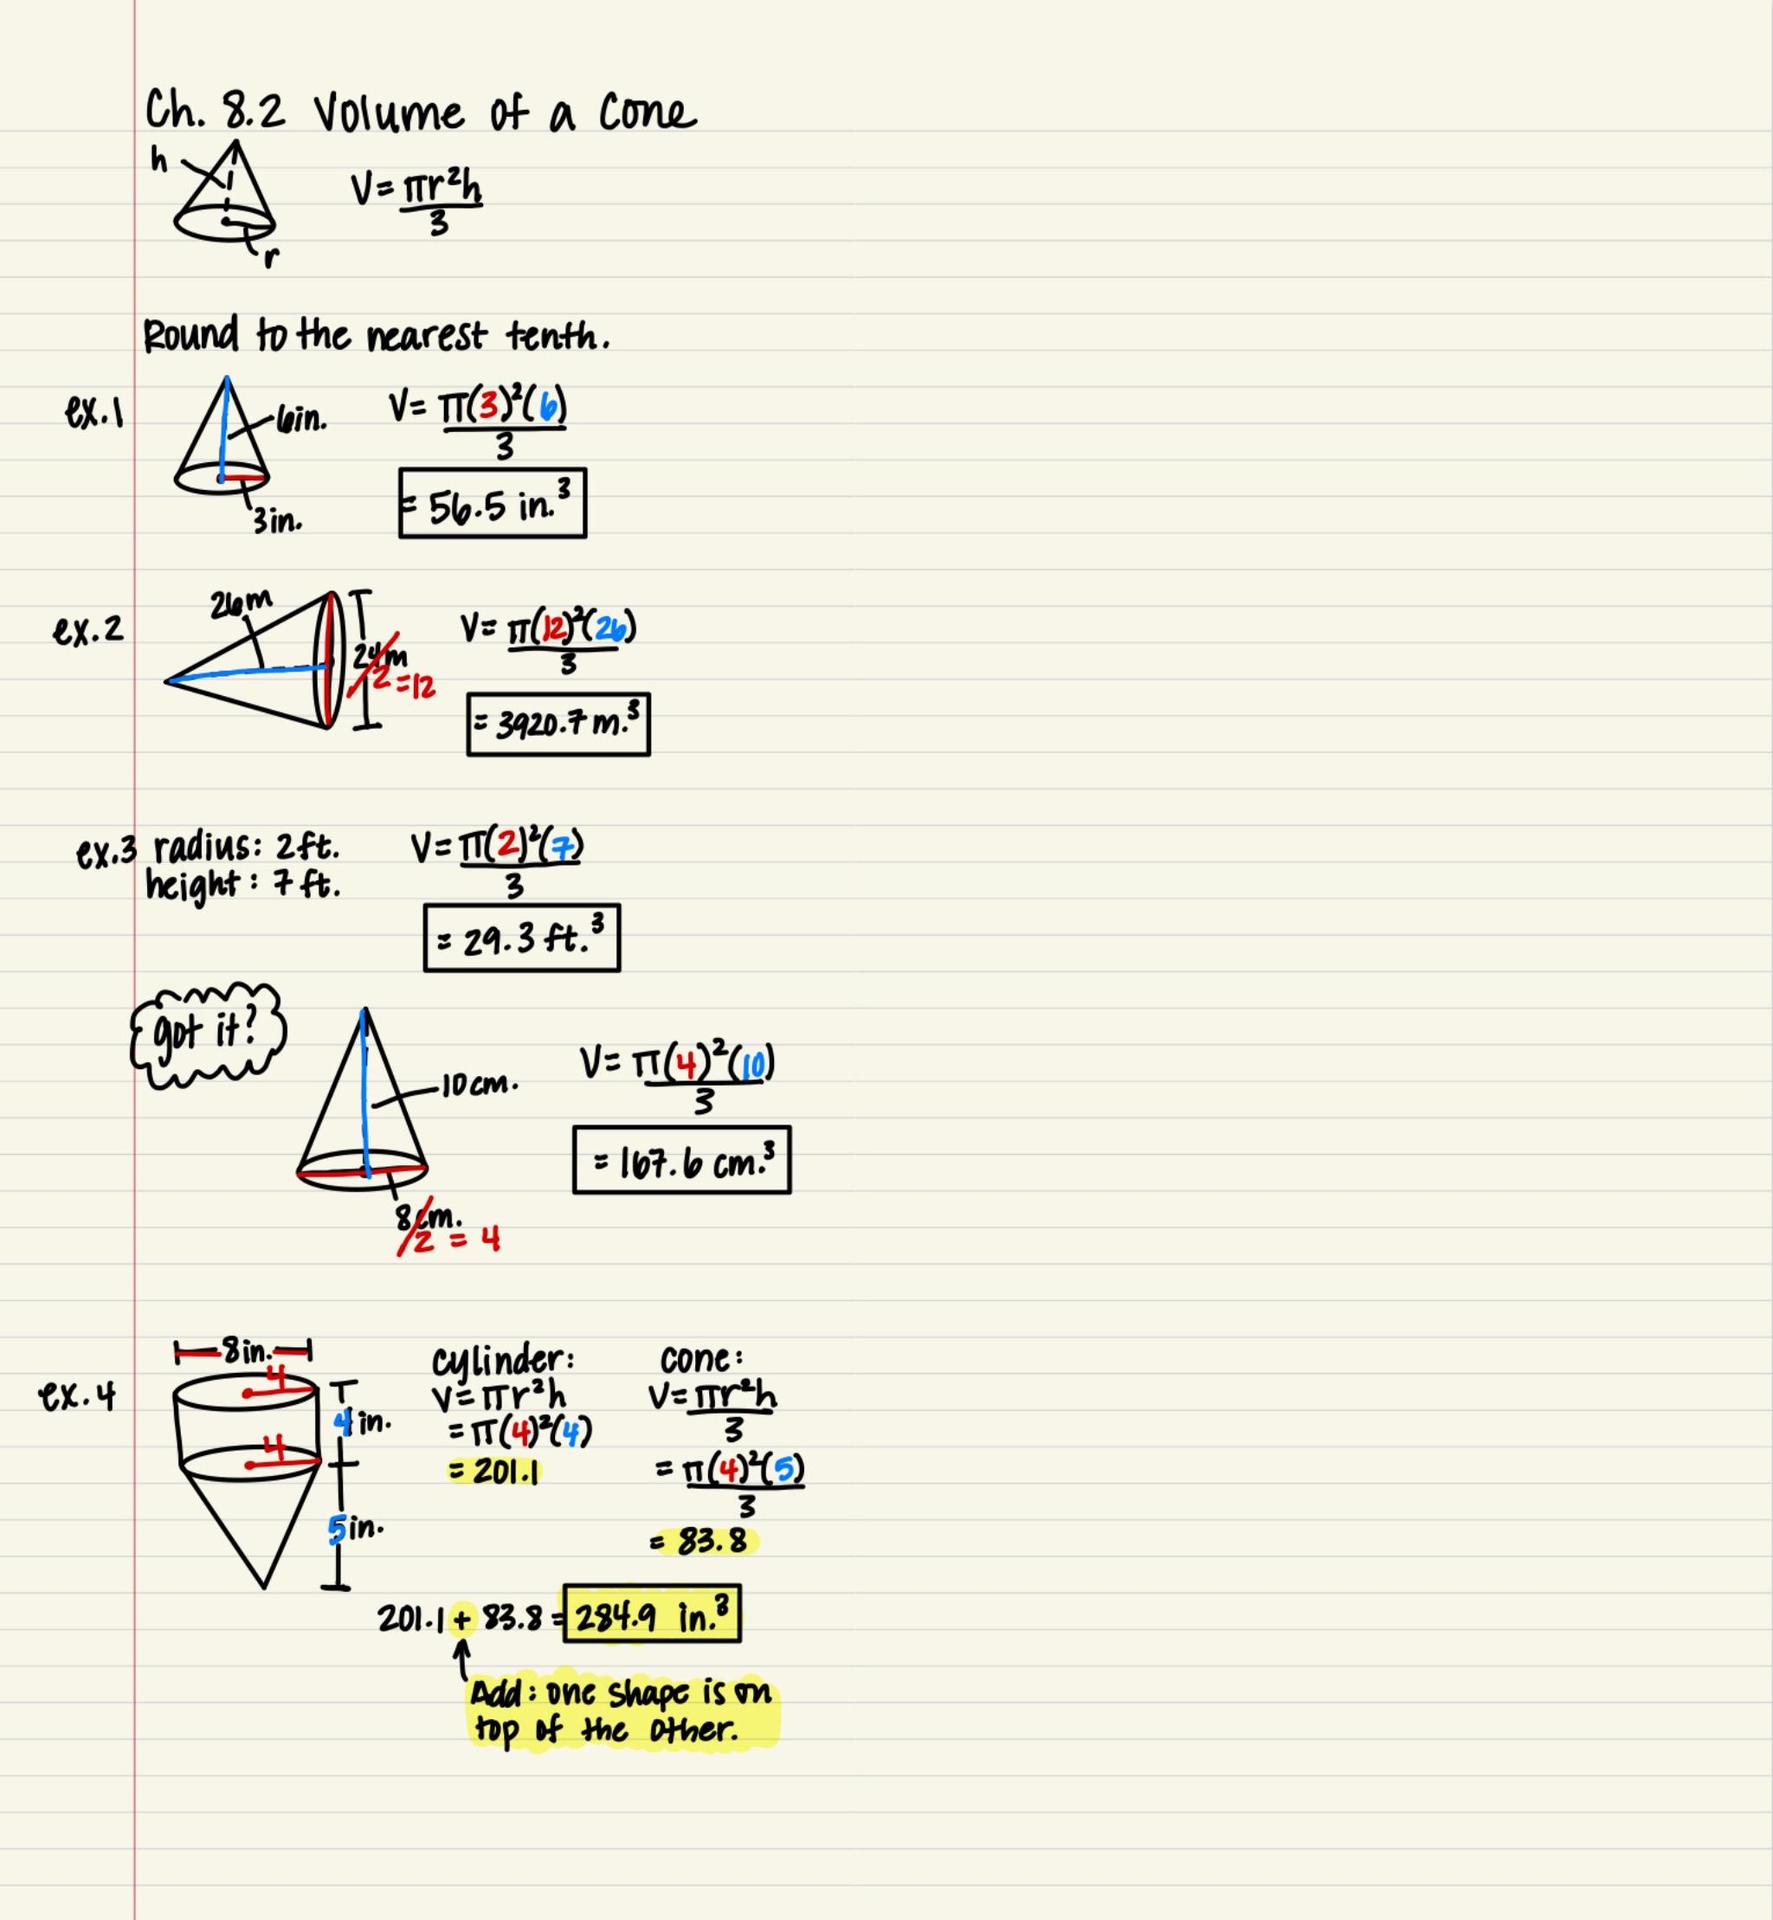 Ch. 8.2 Volume of a Cone
h
V = πr²h
3
r
Round to the nearest tenth.
ex.1
6in.
V = π(3)²(6)
3
= 56.5 in.³
3in.
ex.2
26m
24m
2 = 12
V = π(12)²(26)
3
= 3920.7 m.³
ex.3 radius: 2ft.
height: 7 ft.
V = π(2)²(7)
3
= 29.3 ft.³
got it?
10cm.
V = π(4)²(10)
3
= 167.6 cm.³
8cm.
2 = 4
ex.4
8in.
4
4in.
4
5in.
cylinder:
V = πr²h
= π(4)²(4)
= 201.1
cone:
V = πr²h
3
= π(4)²(5)
3
= 83.8
201.1 + 83.8 = 284.9 in.³
Add: one shape is on
top of the other.